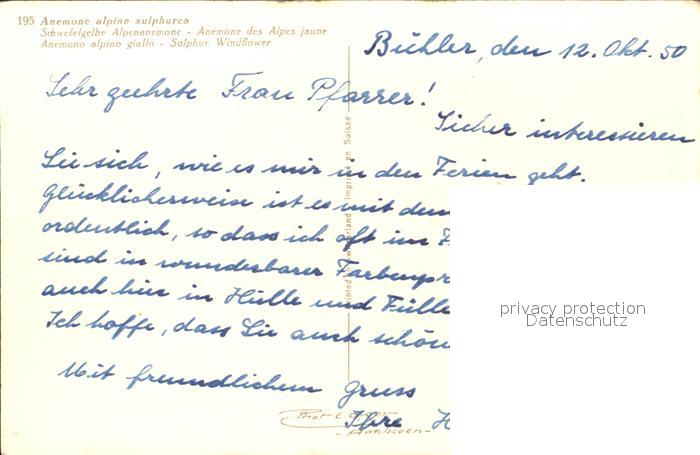 195 Anemone alpine sulphurea
Schwefelgelbe Alpenanemone - Anemone des Alpes jaune
Anemono alpino giallo - Sulphur Windflower
Bühler, den 12. Okt. 50
Sehr geehrte Frau Pfarrer!
Sicher interessieren
Sie sich, wie es mir in den Ferien geht.
Glücklicherweise ist es mit dem
ordentlich, so dass ich oft im
sind in wunderbarer
auch hier in Hülle und Fülle
Ich hoffe, dass Sie auch
Mit freundlichem Gruss
Ihre
Printed in Switzerland Imprimé en Suisse
privacy protection
Datenschutz